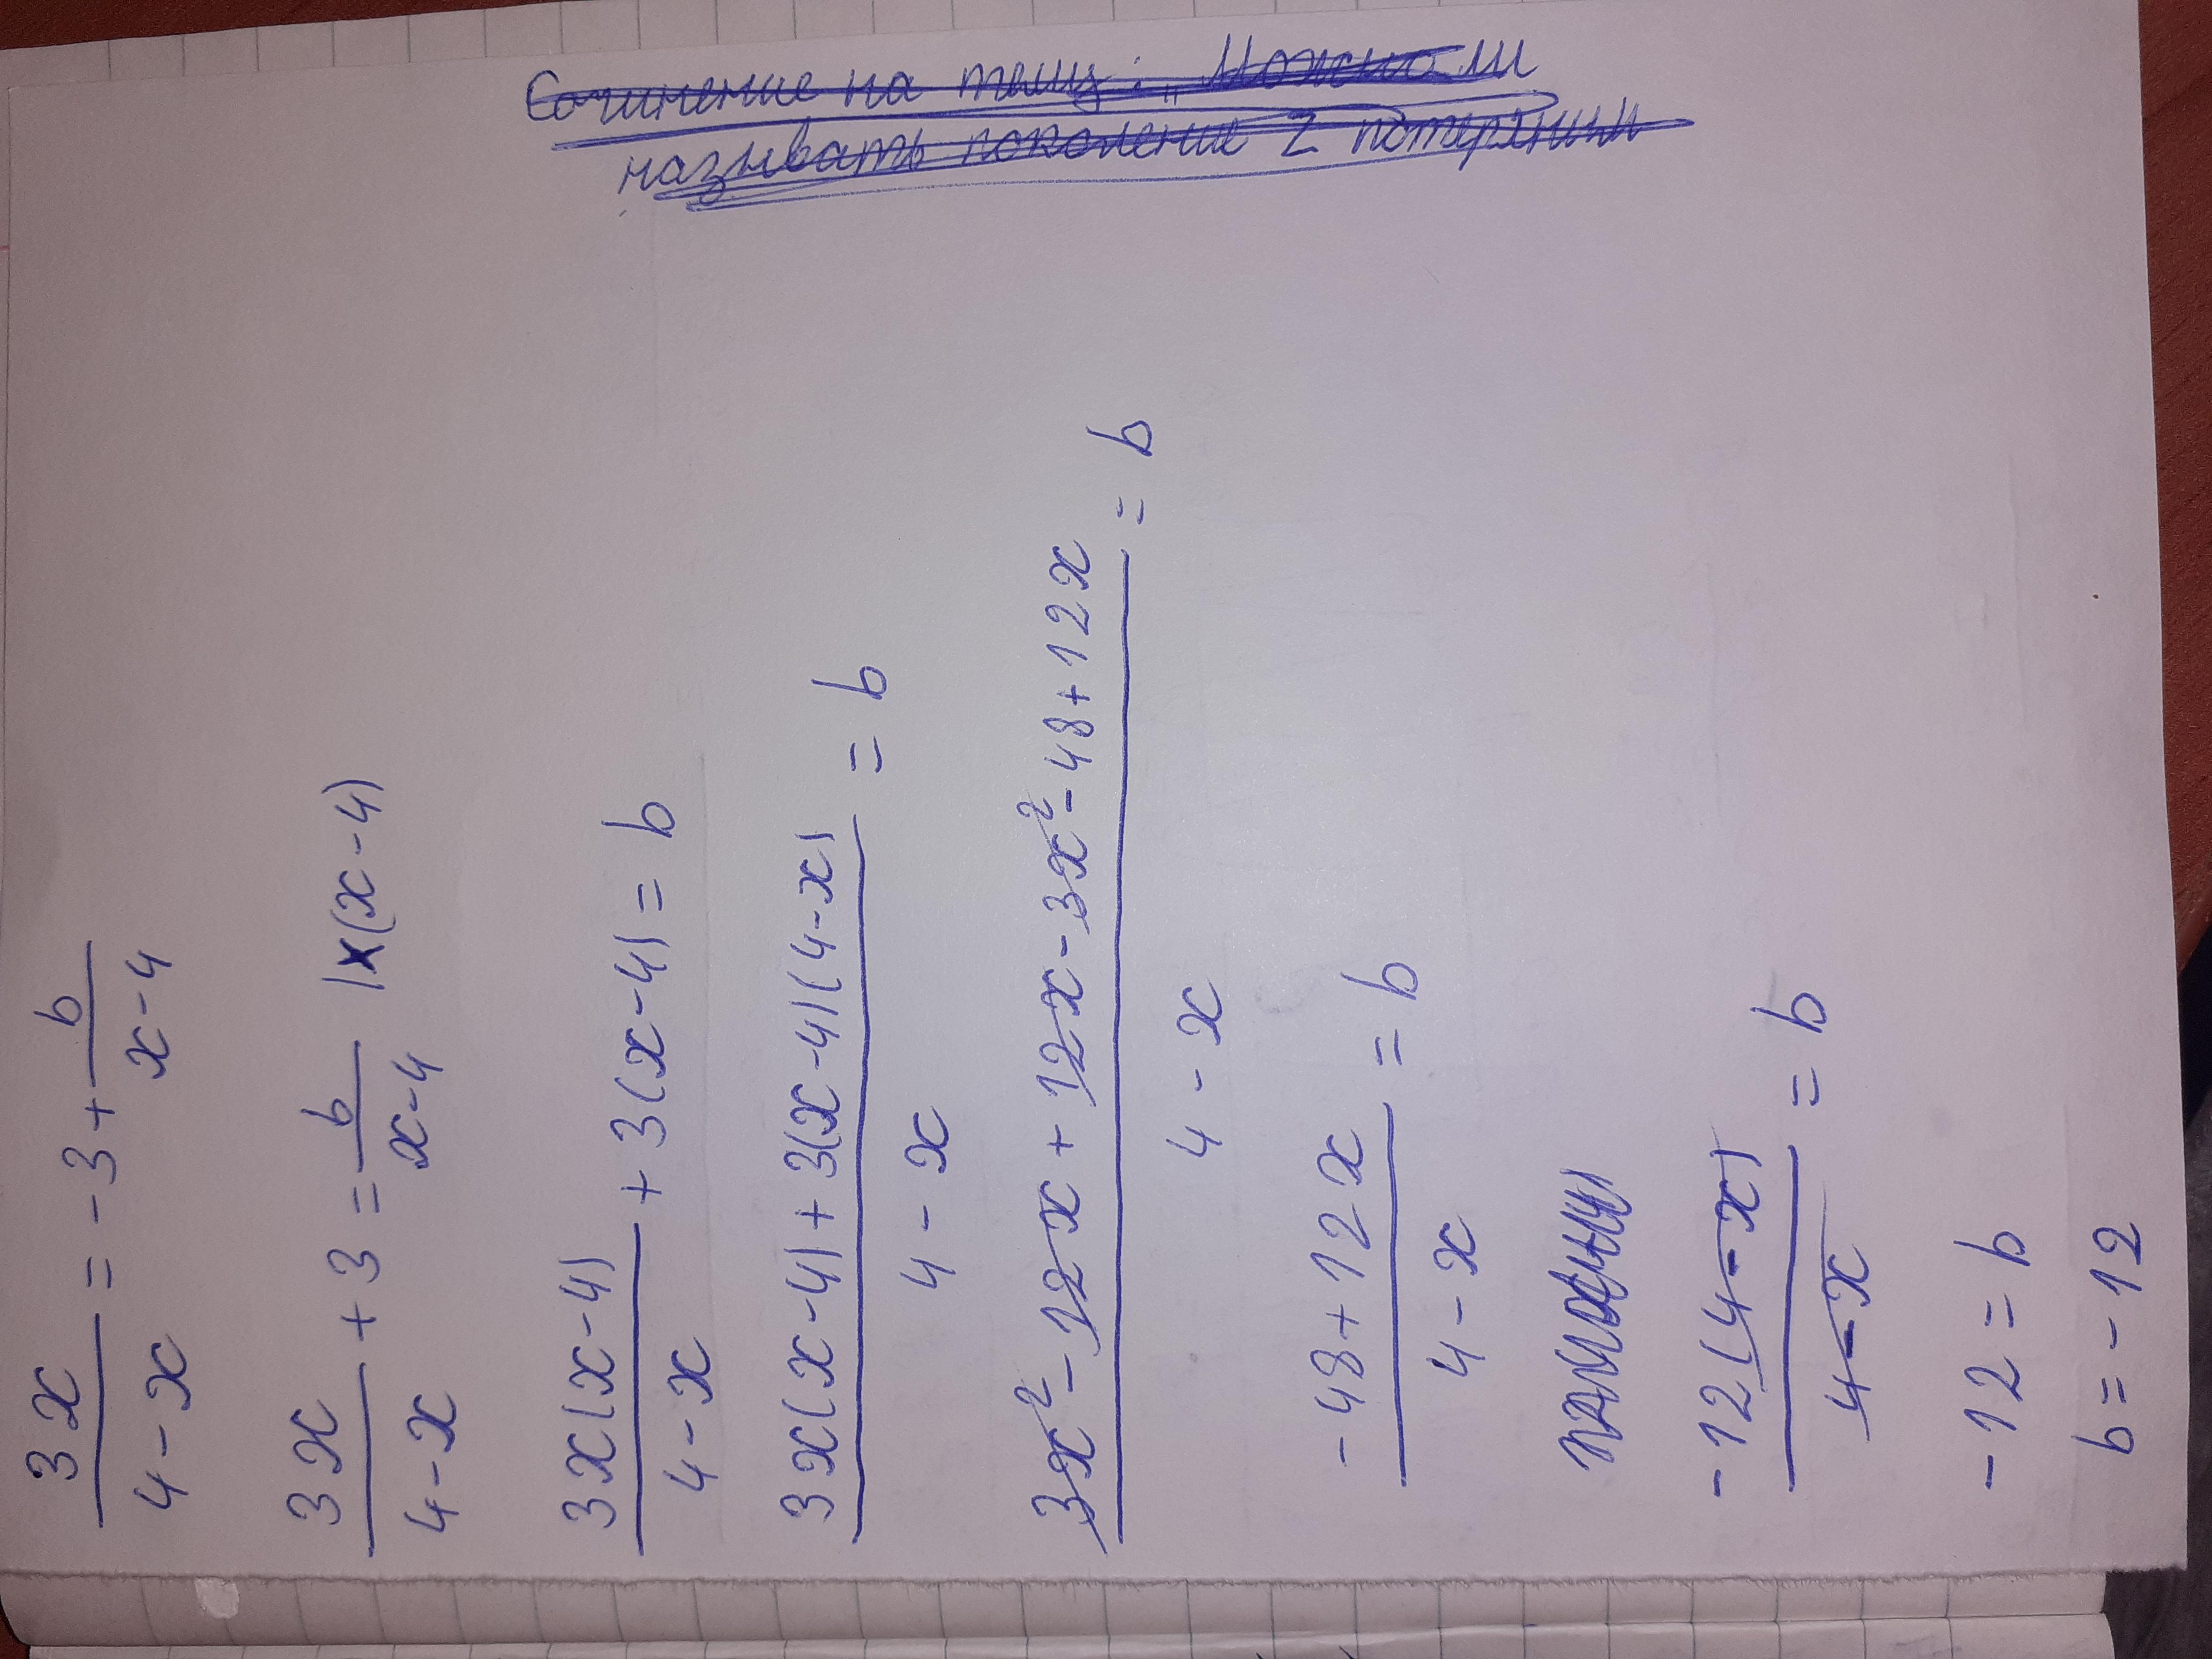 Сочинение на тему: „Можно ли
называть поколение Z потеряным
3x/(4-x) = -3 + b/(x-4)
3x/(4-x) + 3 = b/(x-4) |×(x-4)
3x(x-4)/(4-x) + 3(x-4) = b
(3x(x-4) + 3(x-4)(4-x))/(4-x) = b
(3x² - 12x + 12x - 3x² - 48 + 12x)/(4-x) = b
(-48 + 12x)/(4-x) = b
-12(4-x)/(4-x) = b
-12 = b
b = -12